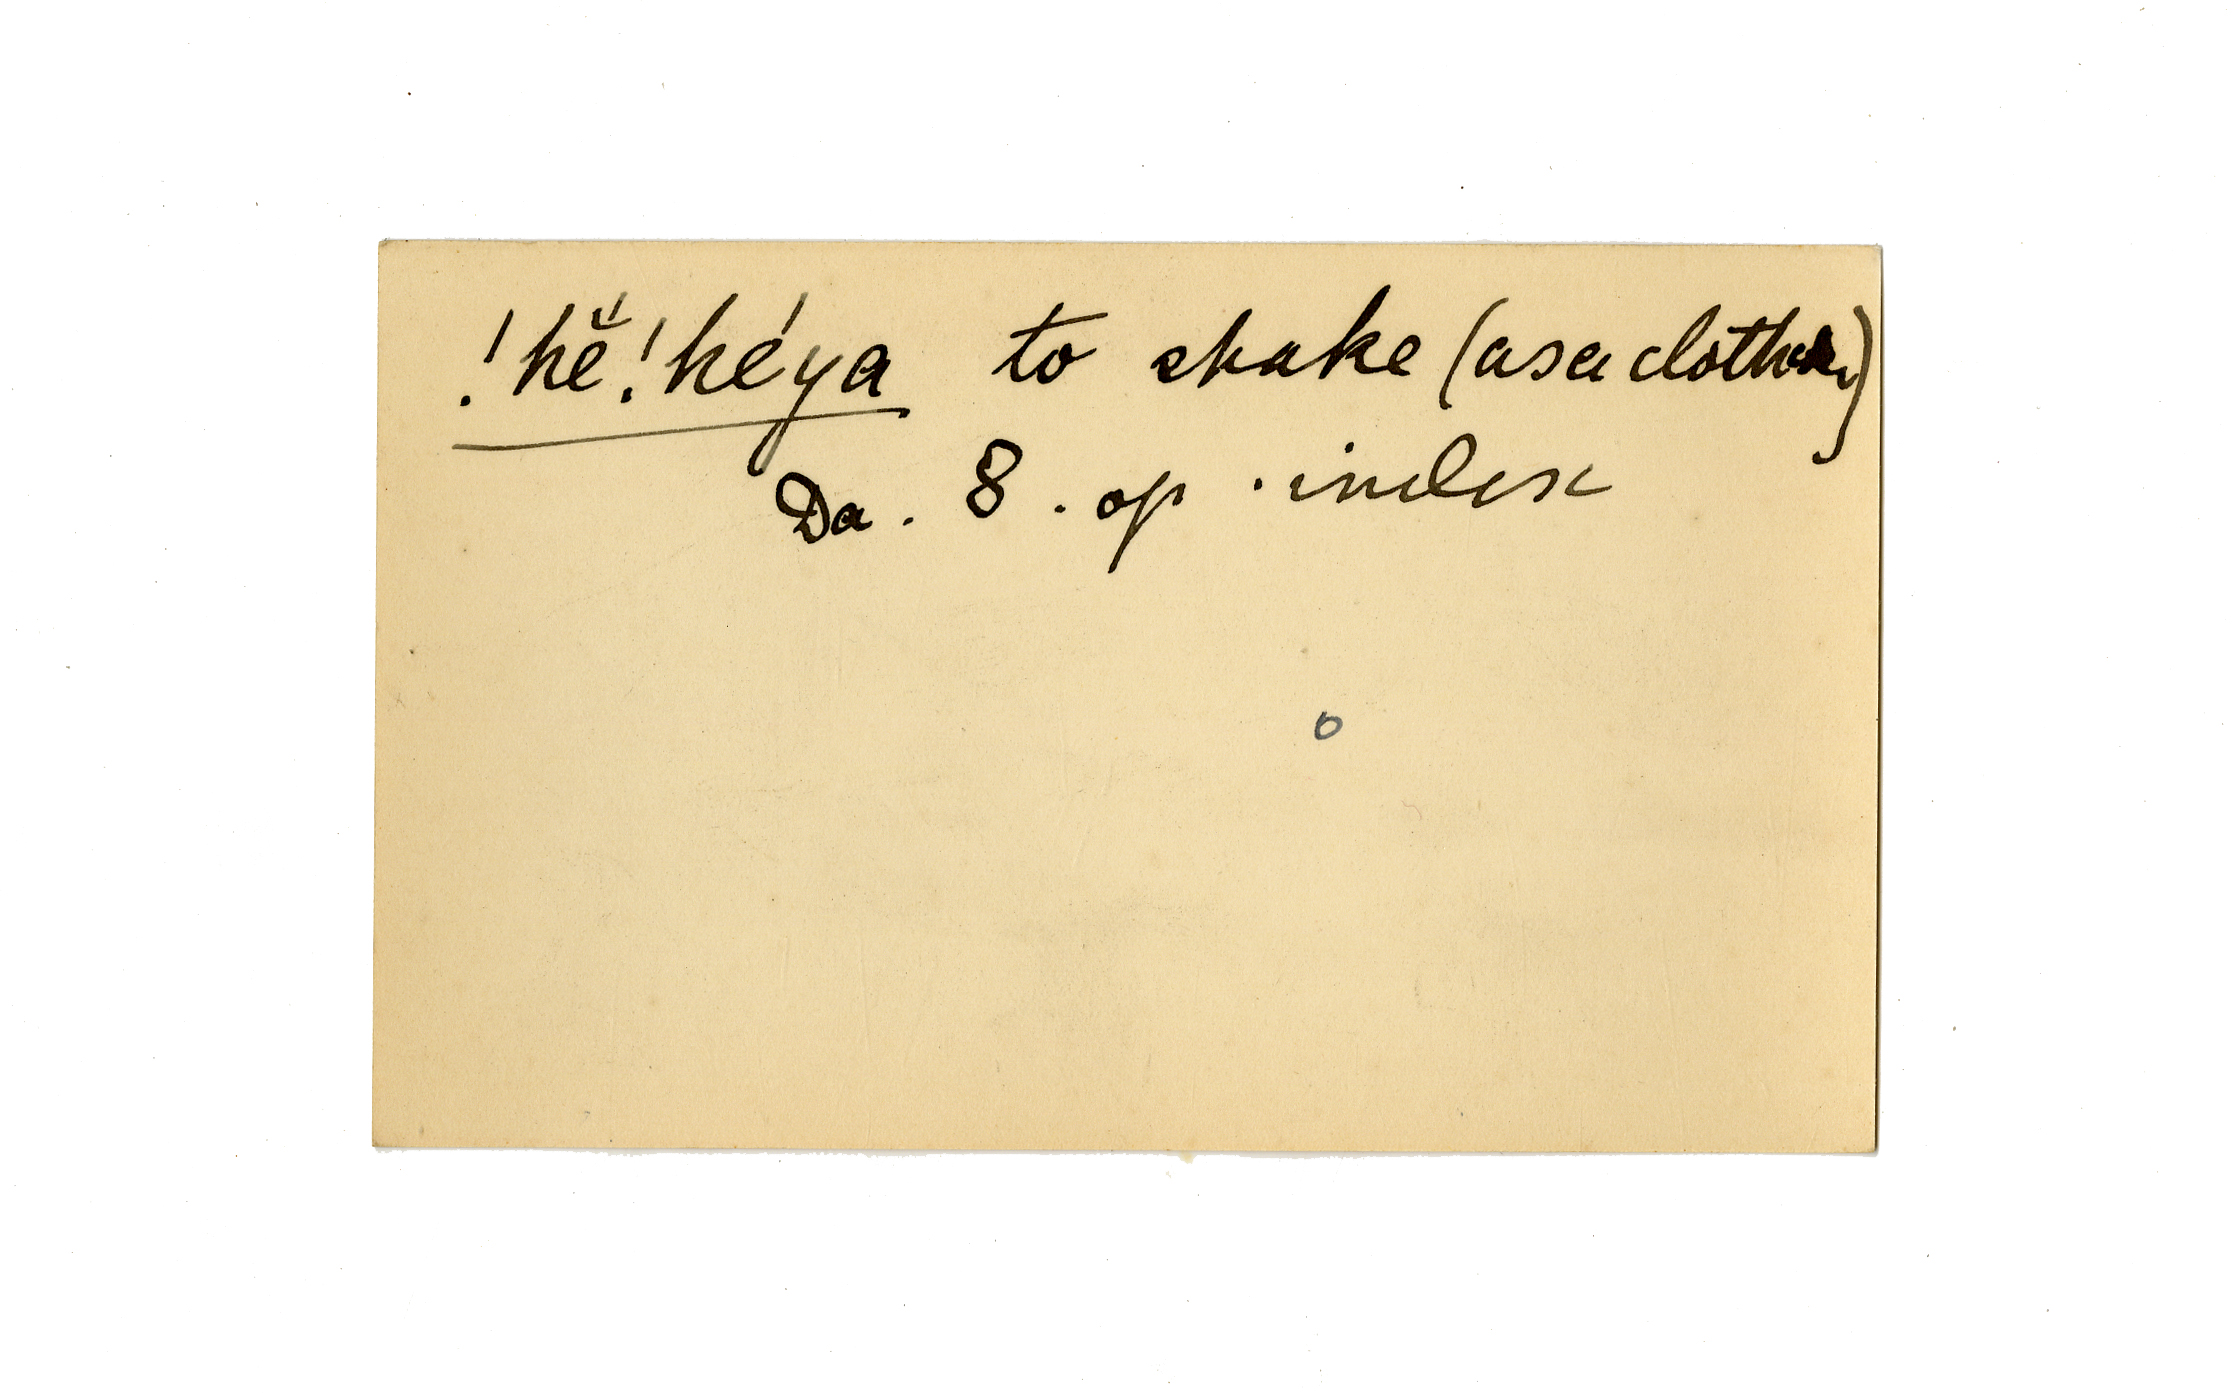 !hĕ́!héya to shake (as a cloth)
Da. 8. op. index
o